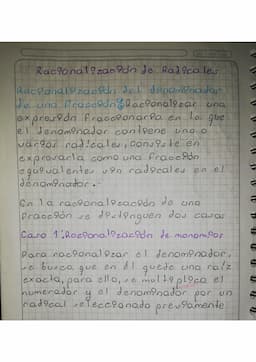 Racionalización de Radicales
Racionalización del denominador
de una Fracción: Racionalizar una
expresión Fraccionaria en la que
el denominador contiene uno o
varios radicales, consiste en
expresarla como una fracción
equivalentes sin radicales en el
denominador.
En la racionalización de una
Fracción se distinguen dos casos
Caso 1: Racionalización de monomios
Para racionalizar el denominador,
se busca que en él quede una raíz
exacta, para ello, se multiplica el
numerador y el denominador por un
radical seleccionado previamente